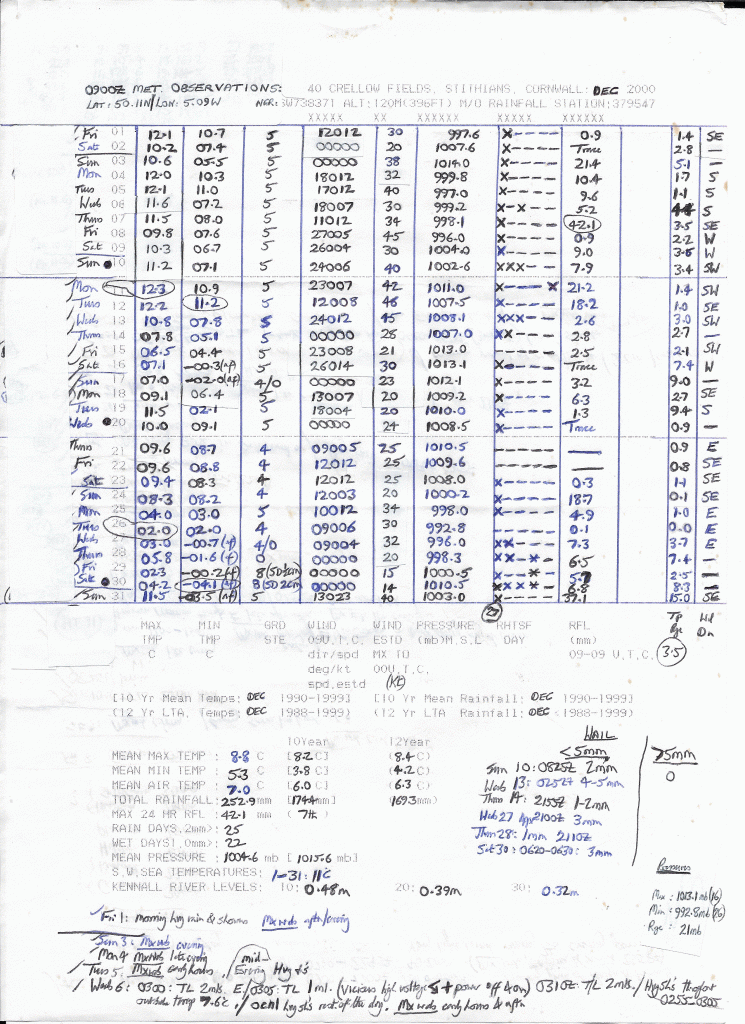 0900Z MET. OBSERVATIONS: 40 CRELLOW FIELDS, STITHIANS, CORNWALL: DEC 2000
LAT: 50.11N/LON: 5.09W NGR: SW738371 ALT:120M(396FT) M/O RAINFALL STATION:379547
XXXXX XX XXXXXX XXXXX XXXXXX
Fri 01 12.1 10.7 5 12012 30 997.6 X---- 0.9 1.4 SE
Sat 02 10.2 07.4 5 00000 20 1007.6 X---- Trace 2.8 —
Sun 03 10.6 05.5 5 00000 38 1014.0 X---- 21.4 5.1 —
Mon 04 12.0 10.3 5 18012 32 999.8 X---- 10.4 1.7 S
Tues 05 12.1 11.0 5 17012 40 997.0 X---- 9.6 1.1 S
Weds 06 11.6 07.2 5 18007 30 999.2 X-X--- 5.2 4.4 S
Thurs 07 11.5 08.0 5 11012 34 998.1 X---- 42.1 3.5 SE
Fri 08 09.8 07.6 5 27005 45 996.0 X---- 0.9 2.2 W
Sat 09 10.3 06.7 5 26004 30 1004.0 X---- 9.0 3.6 W
Sun 10 11.2 07.1 5 24006 40 1002.6 XXX-- 7.9 3.4 SW
Mon 11 12.3 10.9 5 23007 42 1011.0 X----X 21.2 1.4 SW
Tues 12 12.2 11.2 5 12008 46 1007.5 X---- 18.2 1.0 SE
Weds 13 10.8 07.8 5 24012 45 1008.1 XXX-- 2.6 3.0 SW
Thurs 14 07.8 05.1 5 00000 28 1007.0 XX--- 2.8 2.7
Fri 15 06.5 04.4 5 23008 21 1013.0 X---- 2.5 2.1 SW
Sat 16 07.1 -00.3(nf) 5 26014 30 1013.1 X---- Trace 7.4 W
Sun 17 07.0 -02.0(nf) 4/0 00000 23 1012.1 X---- 3.2 9.0 —
Mon 18 09.1 06.4 5 13007 20 1009.2 X---- 6.3 2.7 SE
Tues 19 11.5 02.1 5 18004 20 1010.0 X---- 1.3 9.4 S
Weds 20 10.0 09.1 5 00000 24 1008.5 X---- Trace 0.9 —
Thurs 21 09.6 08.7 4 09005 25 1010.5 ----- — 0.9 E
Fri 22 09.6 08.8 4 12012 25 1009.6 ----- — 0.8 SE
Sat 23 09.4 08.3 4 12012 25 1008.0 X---- 0.3 1.1 SE
Sun 24 08.3 08.2 4 12003 20 1000.2 X---- 18.7 0.1 SE
Mon 25 04.0 03.0 5 10012 34 998.0 X---- 4.9 1.0 E
Tues 26 02.0 02.0 4 09006 30 992.8 ----- 0.1 0.0 E
Weds 27 03.0 -00.7(f) 4/0 09004 32 996.0 XX--- 7.3 3.7 E
Thurs 28 05.8 -01.6(f) 0 00000 20 998.3 XX-X- 6.5 7.4 —
Fri 29 02.3 -00.2(f) 8 00000 15 1000.5 X--X- 5.7 2.5 —
Sat 30 04.2 -04.1(f) 8(50 2cm) 00000 14 1010.5 X--X- 6.8 8.3 —
Sun 31 11.5 -03.5(nf) 5 13023 40 1003.0 X---- 37.1 15.0 SE
MAX MIN GRD WIND WIND PRESSURE RHTSF RFL Tp Wd
TMP TMP STE 09U.T.C. ESTD (mb)M.S.L DAY (mm) Rge Dn
C C dir/spd MX TO 09-09 U.T.C. 3.5
deg/kt 00U.T.C.
spd.estd (Kt)
[10 Yr Mean Temps: DEC 1990-1999] [10 Yr Mean Rainfall: DEC 1990-1999]
(12 Yr LTA, Temps: DEC 1988-1999) (12 Yr LTA Rainfall: DEC (1988-1999)
10Year 12Year
MEAN MAX TEMP : 8.8 C [8.2 C] (8.4 C)
MEAN MIN TEMP : 5.3 C [3.8 C] (4.2 C)
MEAN AIR TEMP : 7.0 C [6.0 C] (6.3 C)
TOTAL RAINFALL: 252.9 mm [174.4mm] (169.3mm)
MAX 24 HR RFL : 42.1 mm (7th)
RAIN DAYS,2mm): 25
WET DAYS1.0mm): 22
MEAN PRESSURE : 1004.6 mb [1015.6 mb]
S.W.SEA TEMPERATURES: 1-31: 11°C
KENNALL RIVER LEVELS: 10: 0.48m 20: 0.39m 30: 0.32m
HAIL
<5mm >5mm
Sun 10: 0825Z 2mm 0
Weds 13: 0252Z 4-5mm
Thurs 14: 2155Z 1-2mm
Wed 27 2100Z 3mm
Thurs 28: 1mm 2110Z
Sat 30: 0620-0630: 3mm
Pressures
Max: 1013.1mb(16)
Min: 992.8mb(26)
Rge: 21mb
Fri 1: morning hvy rain & showers Mx wds aftn/evening
Sun 3: Mx wds evening
Mon 4 Mx wds late evening
Tues 5. Mx wds early hours, mid-Evening Hvy
Weds 6: 0300: TL 2mls. E/0305: TL 1ml. (Vicious high voltage + power off) 0310Z T/L 2mls. / Hvy sh's
outside temp 7.6c / hvy sh's rest of the day. Mx wds early hours & aftn 0255-0305